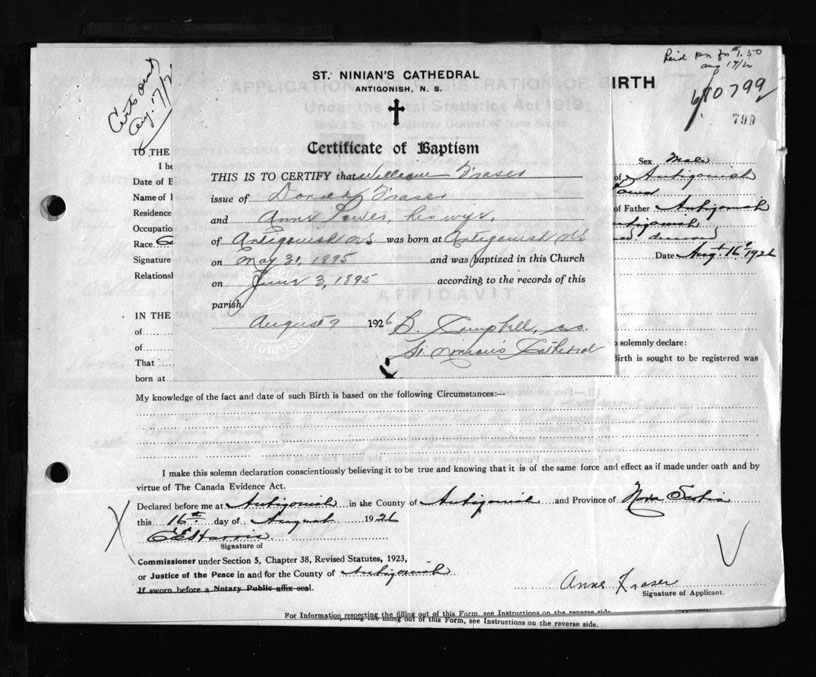 Cert sent
Aug. 17/2
Aug 17/2
680799
799
ST. NINIAN'S CATHEDRAL
ANTIGONISH, N. S.
Certificate of Baptism
THIS IS TO CERTIFY that William Fraser
issue of Donald Fraser
and Anne his wife,
of Antigonish N.S was born at Antigonish N.S
on May 31, 1895 and was baptized in this Church
on June 3, 1895 according to the records of this
parish.
August 9 1926
St. Ninian's Cathedral
BIRTH
TO THE
I he
Date of B
Name of
Residence
Occupatio
Race
Signature
Relationsl
Sex Male
of Antigonish
of Father Antigonish
Date Aug. 16th 1926
AFFIDAVIT
IN THE
of
of
That
born at
solemnly declare:
Birth is sought to be registered was
My knowledge of the fact and date of such Birth is based on the following Circumstances:—
I make this solemn declaration conscientiously believing it to be true and knowing that it is of the same force and effect as if made under oath and by
virtue of The Canada Evidence Act.
Declared before me at Antigonish in the County of Antigonish and Province of Nova Scotia
this 16th day of August 1926
Signature of
Commissioner under Section 5, Chapter 38, Revised Statutes, 1923,
or Justice of the Peace in and for the County of Antigonish
If sworn before a Notary Public affix seal.
Anne Fraser
Signature of Applicant.
For Information respecting the filling out of this Form, see Instructions on the reverse side.
out of this Form, see Instructions on the reverse side.